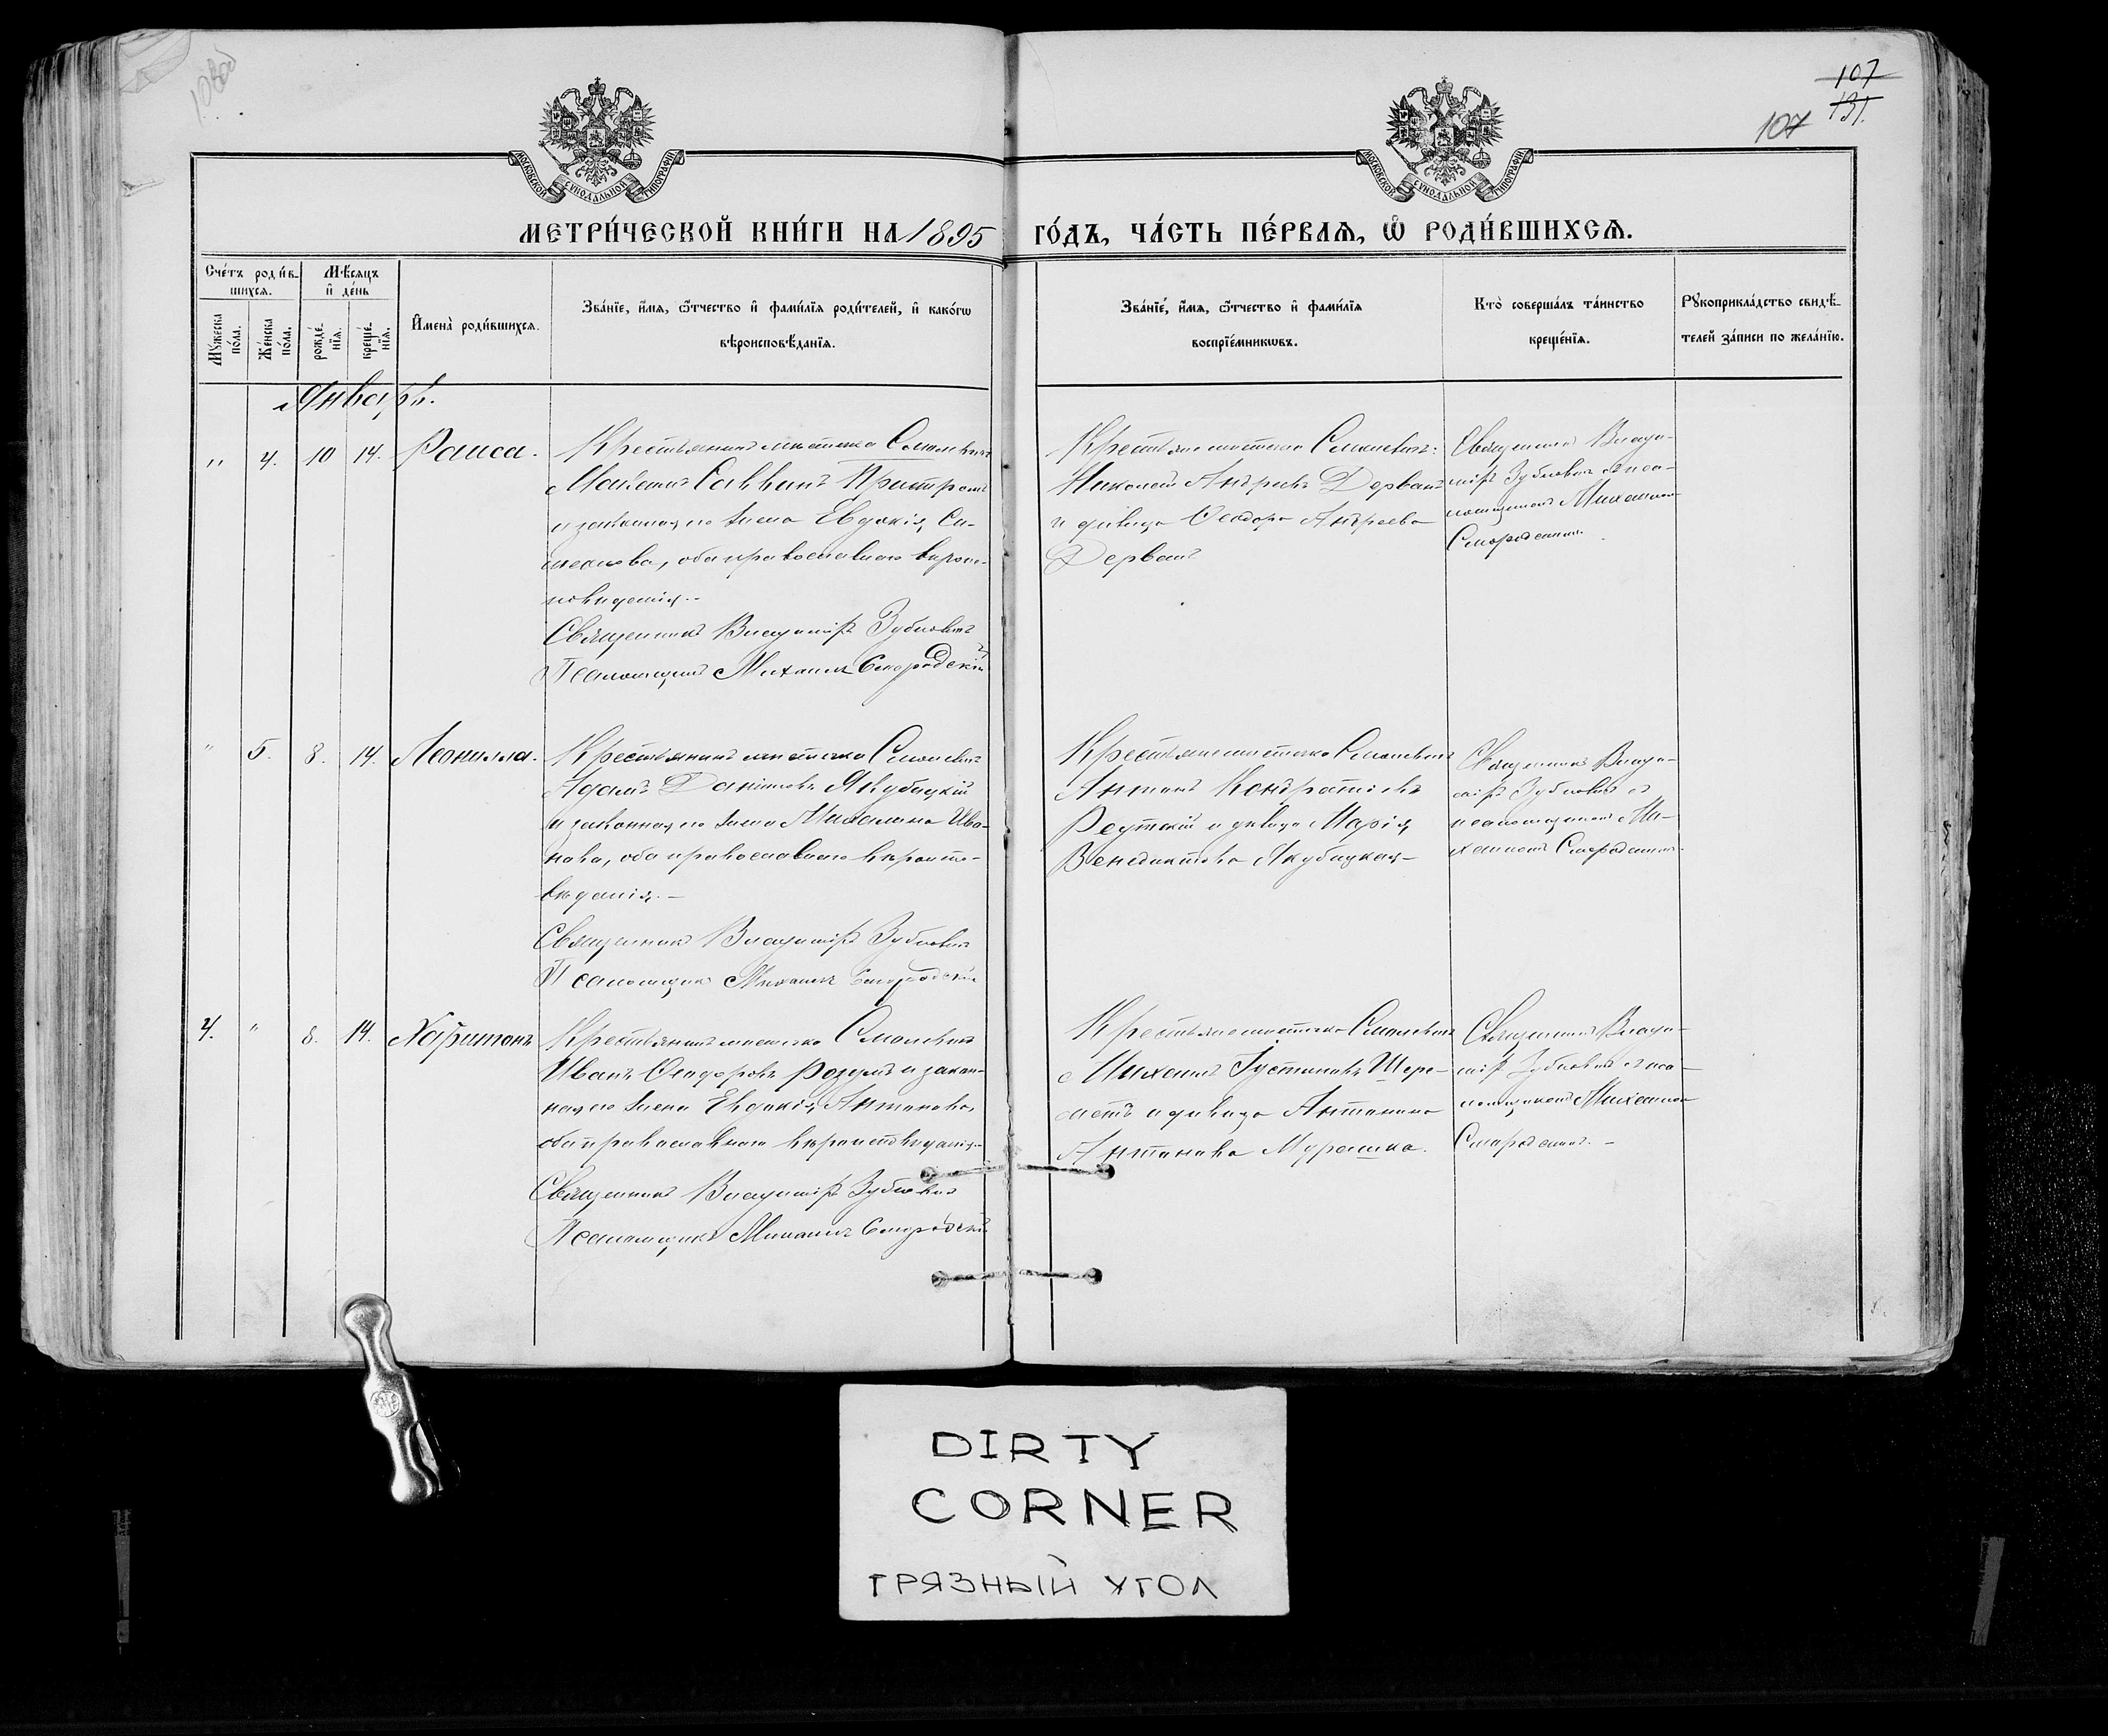 107
131.
107
МОСКОВСКОЙ СѴНОДАЛЬНОЙ ТИПОГРАФІИ
МОСКОВСКОЙ СѴНОДАЛЬНОЙ ТИПОГРАФІИ
МЕТРИ́ЧЕСКОЙ КНИ́ГИ НА 1895 ГО́ДЪ, ЧА́СТЬ ПЕ́РВАѦ, Ѡ҆ РОДИ́ВШИХСѦ.
Сче́тъ роди́в-
шихсѧ.
Мꙋ́жеска по́ла.
Же́нска по́ла.
Мѣ́сѧцъ
и҆ де́нь
рожде́-
нїѧ.
креще́-
нїѧ.
И҆мена̀ роди́вшихсѧ.
Зва́нїе, и҆́мѧ, ѻ҆́тчество и҆ фами́лїѧ роди́телей, и҆ како́гѡ
вѣроисповѣ́данїѧ.
Зва́нїе, и҆́мѧ, ѻ҆́тчество и҆ фами́лїѧ
воспрїе́мникѡвъ.
Кто̀ соверша́лъ та́инство
креще́нїѧ.
Рꙋкоприкла́дство свидѣ́-
телей за́писи по жела́нїю.
Январь.
" 4. 10 14. Раиса.
Крестьянинъ мѣстечка Смолевичъ
Саввинъ
и законная его жена Евдокія Си-
оба православнаго вѣроис-
повѣданія.-
Священникъ Владиміръ Зубковичъ
Псаломщикъ Михаилъ Смородскій
Крестьяне мѣстечка Смолевичъ:
Николай Андреевъ Дерванъ
и дѣвица Ѳеодора Андреева
Дерванъ
Священникъ Влади-
міръ Зубковичъ съ пса-
ломщикомъ Михаиломъ
Смородскимъ.
" 5. 8. 14. Леонилла.
Крестьянинъ мѣстечка Смолевичъ
Адамъ Даніиловъ Якубицкій
и законная его жена Михалина Ива-
нова, оба православнаго вѣроиспо-
вѣданія.-
Священникъ Владиміръ Зубковичъ
Псаломщикъ Михаилъ Смородскій
Крестьяне мѣстечка Смолевичъ
Антонъ Кондратьевъ
Реутскій и дѣвица Марія
Венедиктова Якубицкая-
Священникъ Влади-
міръ Зубковичъ съ
псаломщикомъ Ми-
хаиломъ Смородскимъ.
4. " 8. 14. Харитонъ
Крестьянинъ мѣстечка Смолевичъ
Иванъ Ѳеодоровъ Розумъ и закон-
ная его жена Евдокія Антонова,
оба православнаго вѣроисповѣданія.-
Священникъ Владиміръ Зубковичъ
Псаломщикъ Михаилъ Смородскій
Крестьяне мѣстечка Смолевичъ
Михаилъ Іустиновъ Шере-
метъ и дѣвица Антонина
Антонова Мурашко.
Священникъ Влади-
міръ Зубковичъ съ пса-
ломщикомъ Михаиломъ
Смородскимъ.-
DIRTY
CORNER
ГРЯЗНЫЙ УГОЛ